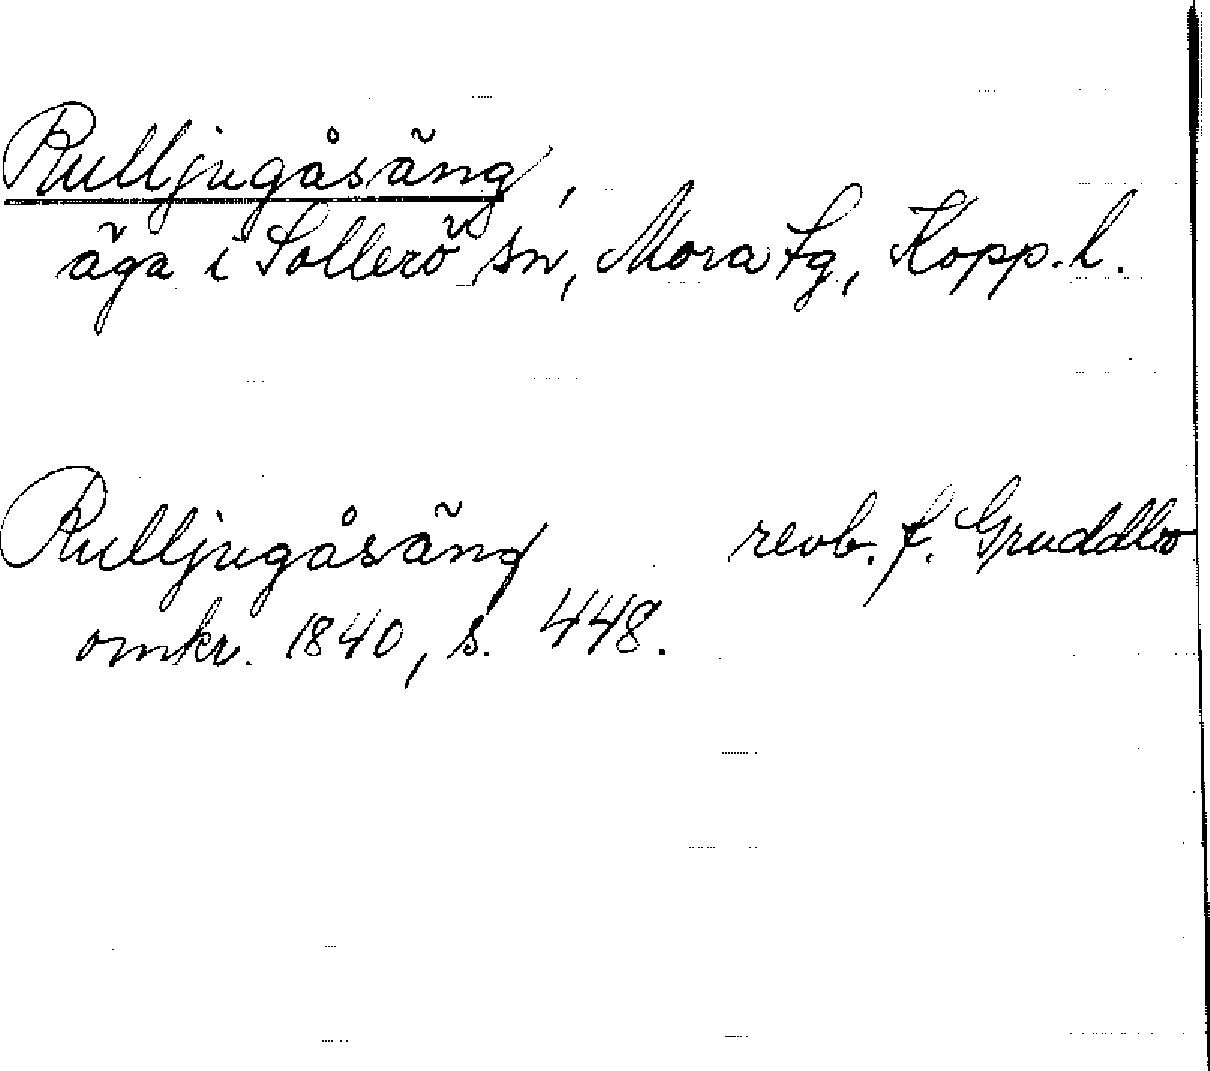 Rulljugåsäng,
äga i Sollerö sn, Mora tg, Kopp. l.
Rulljugåsäng revb. f. Gruddbo
omkr. 1840, s. 448.